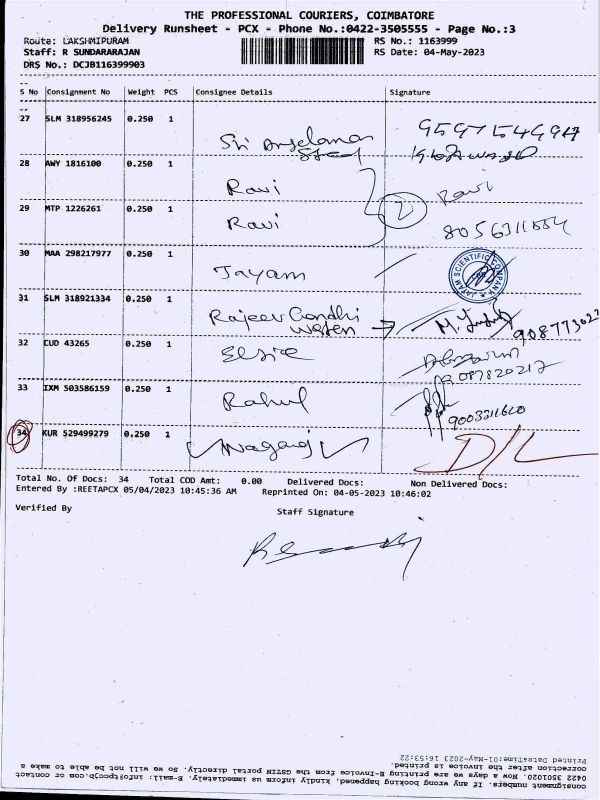 THE PROFESSIONAL COURIERS, COIMBATORE
Delivery Runsheet - PCX - Phone No.:0422-3505555 - Page No.:3
Route: LAKSHMIPURAM RS No.: 1163999
Staff: R SUNDARARAJAN RS Date: 04-May-2023
DRS No.: DCJB116399903
S No Consignment No Weight PCS Consignee Details Signature
27 SLM 318956245 0.250 1
Sri
28 AWY 1816100 0.250 1
Ravi Ravi
2
29 MTP 1226261 0.250 1
Ravi
30 MAA 298217977 0.250 1
Jayam JAYAM SCIENTIFIC COMPANY
31 SLM 318921334 0.250 1
Rajeev Gandhi
32 CUD 43265 0.250 1
33 IXM 503586159 0.250 1
Rahul
34 KUR 529499279 0.250 1
Nagaraj D/L
Total No. Of Docs: 34 Total COD Amt: 0.00 Delivered Docs: Non Delivered Docs:
Entered By :REETAPCX 05/04/2023 10:45:36 AM Reprinted On: 04-05-2023 10:46:02
Verified By Staff Signature
consignment numbers. If any wrong booking happened, kindly inform us immediately. E-mail: info@tpccjb.com or contact
0422 3501020. Now a days we are printing E-Invoice from the GSTIN portal directly. So we will not be able to make a
correction after the invoice is printed.
Printed DateTime:01-May-2023 16:53:22